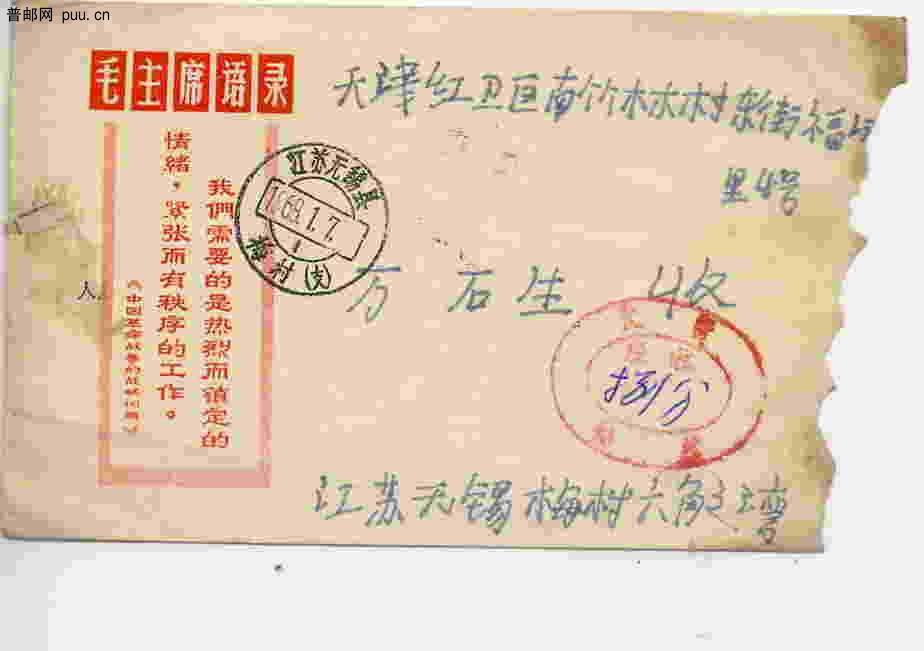 普邮网 puu.cn
毛主席语录
我們需要的是热烈而镇定的
情緒，紧张而有秩序的工作。
《中国革命战爭的战略问题》
天津红卫区南竹林村新街福
里4号
万石生 收
江苏无錫县
1969.1.7.
梅村(支)
江苏无锡梅村六
湾